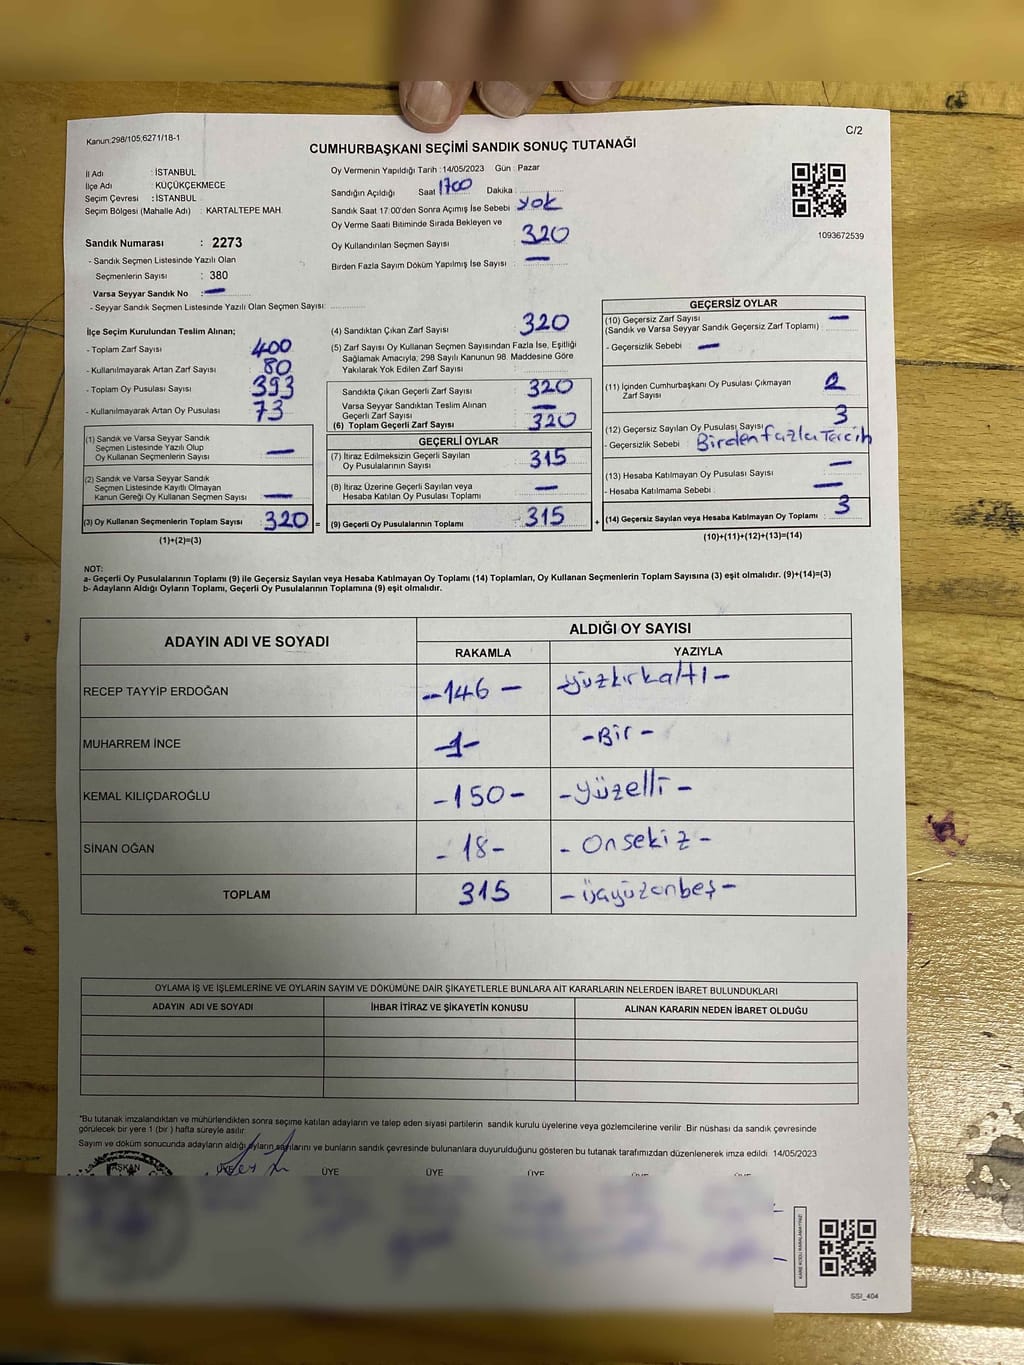 Kanun:298/105,6271/18-1
C/2
CUMHURBAŞKANI SEÇİMİ SANDIK SONUÇ TUTANAĞI
İl Adı : İSTANBUL
İlçe Adı : KÜÇÜKÇEKMECE
Seçim Çevresi : İSTANBUL
Seçim Bölgesi (Mahalle Adı) : KARTALTEPE MAH.
Sandık Numarası : 2273
- Sandık Seçmen Listesinde Yazılı Olan
Seçmenlerin Sayısı : 380
Varsa Seyyar Sandık No : —
- Seyyar Sandık Seçmen Listesinde Yazılı Olan Seçmen Sayısı:
Oy Vermenin Yapıldığı Tarih : 14/05/2023 Gün : Pazar
Sandığın Açıldığı Saat 1700 Dakika :
Sandık Saat 17:00'den Sonra Açımış İse Sebebi : yok
Oy Verme Saati Bitiminde Sırada Bekleyen ve
Oy Kullandırılan Seçmen Sayısı : 320
Birden Fazla Sayım Döküm Yapılmış İse Sayısı : —
1093672539
İlçe Seçim Kurulundan Teslim Alınan;
- Toplam Zarf Sayısı 400
- Kullanılmayarak Artan Zarf Sayısı 80
- Toplam Oy Pusulası Sayısı 393
- Kullanılmayarak Artan Oy Pusulası 73
(1) Sandık ve Varsa Seyyar Sandık
Seçmen Listesinde Yazılı Olup
Oy Kullanan Seçmenlerin Sayısı —
(2) Sandık ve Varsa Seyyar Sandık
Seçmen Listesinde Kayıtlı Olmayan
Kanun Gereği Oy Kullanan Seçmen Sayısı —
(3) Oy Kullanan Seçmenlerin Toplam Sayısı 320 =
(1)+(2)=(3)
(4) Sandıktan Çıkan Zarf Sayısı : 320
(5) Zarf Sayısı Oy Kullanan Seçmen Sayısından Fazla İse, Eşitliği
Sağlamak Amacıyla, 298 Sayılı Kanunun 98. Maddesine Göre
Yakılarak Yok Edilen Zarf Sayısı :
Sandıkta Çıkan Geçerli Zarf Sayısı : 320
Varsa Seyyar Sandıktan Teslim Alınan
Geçerli Zarf Sayısı : —
(6) Toplam Geçerli Zarf Sayısı : 320
GEÇERLİ OYLAR
(7) İtiraz Edilmeksizin Geçerli Sayılan
Oy Pusulalarının Sayısı : 315
(8) İtiraz Üzerine Geçerli Sayılan veya
Hesaba Katılan Oy Pusulası Toplamı : —
(9) Geçerli Oy Pusulalarının Toplamı : 315 +
GEÇERSİZ OYLAR
(10) Geçersiz Zarf Sayısı —
(Sandık ve Varsa Seyyar Sandık Geçersiz Zarf Toplamı) :
- Geçersizlik Sebebi : —
(11) İçinden Cumhurbaşkanı Oy Pusulası Çıkmayan
Zarf Sayısı : 2
(12) Geçersiz Sayılan Oy Pusulası Sayısı : 3
- Geçersizlik Sebebi : Birden fazla Tercih
(13) Hesaba Katılmayan Oy Pusulası Sayısı : —
- Hesaba Katılmama Sebebi : —
(14) Geçersiz Sayılan veya Hesaba Katılmayan Oy Toplamı : 3
(10)+(11)+(12)+(13)=(14)
NOT:
a- Geçerli Oy Pusulalarının Toplamı (9) ile Geçersiz Sayılan veya Hesaba Katılmayan Oy Toplamı (14) Toplamları, Oy Kullanan Seçmenlerin Toplam Sayısına (3) eşit olmalıdır. (9)+(14)=(3)
b- Adayların Aldığı Oyların Toplamı, Geçerli Oy Pusulalarının Toplamına (9) eşit olmalıdır.
ADAYIN ADI VE SOYADI ALDIĞI OY SAYISI
RAKAMLA YAZIYLA
RECEP TAYYİP ERDOĞAN -146- yüzkırkaltı-
MUHARREM İNCE -1- -Bir-
KEMAL KILIÇDAROĞLU -150- -yüzelli-
SİNAN OĞAN -18- -Onsekiz-
TOPLAM 315 -üçyüzonbeş-
OYLAMA İŞ VE İŞLEMLERİNE VE OYLARIN SAYIM VE DÖKÜMÜNE DAİR ŞİKAYETLERLE BUNLARA AİT KARARLARIN NELERDEN İBARET BULUNDUKLARI
ADAYIN ADI VE SOYADI İHBAR İTİRAZ VE ŞİKAYETİN KONUSU ALINAN KARARIN NEDEN İBARET OLDUĞU
*Bu tutanak imzalandıktan ve mühürlendikten sonra seçime katılan adayların ve talep eden siyasi partilerin sandık kurulu üyelerine veya gözlemcilerine verilir. Bir nüshası da sandık çevresinde
görülecek bir yere 1 (bir) hafta süreyle asılır.
Sayım ve döküm sonucunda adayların aldığı oyların sayılarını ve bunların sandık çevresinde bulunanlara duyurulduğunu gösteren bu tutanak tarafımızdan düzenlenerek imza edildi. 14/05/2023
BAŞKAN ÜYE ÜYE ÜYE ÜYE
SSİ_404